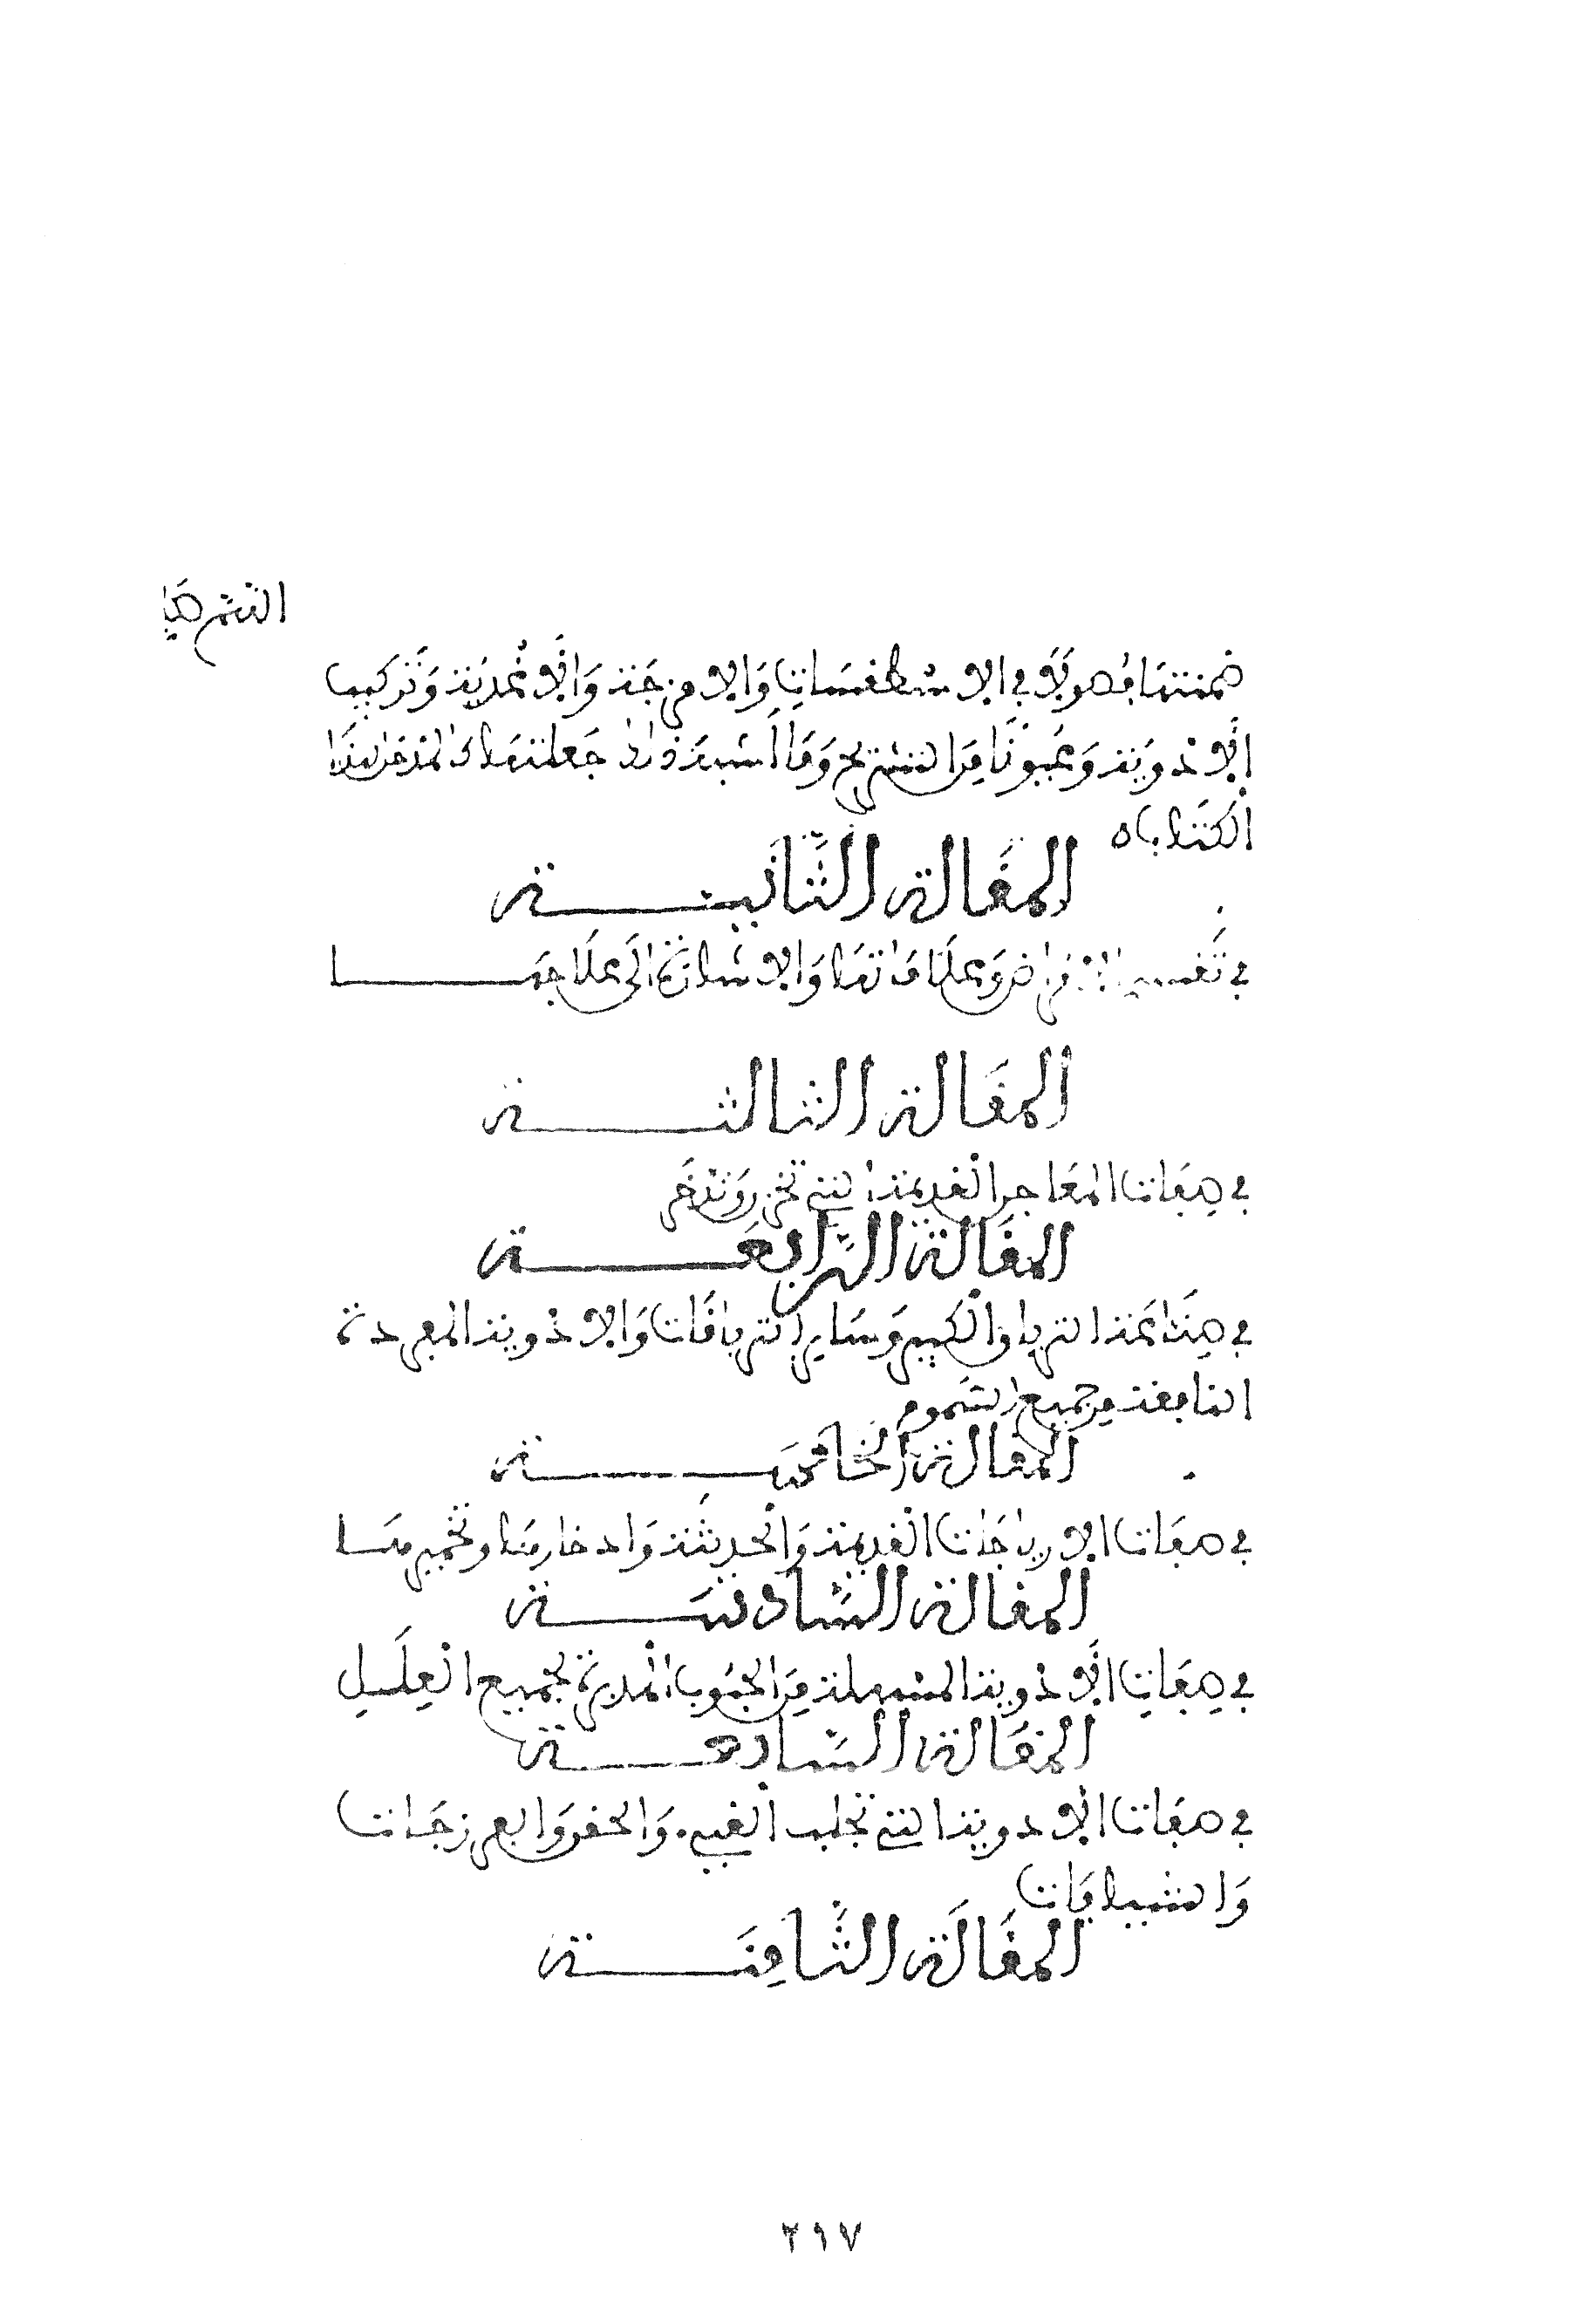 ضمنتها فصولا في الاسطقسات والامزجة والاغذية وتركيب
الادوية وعيونا من التشريح وما اشبه ذلك جعلتها كالمدخل لهذا
الكتاب ه
المقالة الثانية
في تقسيم الامراض وعلاماتها والاشارة الى علاجها
المقالة الثالثة
في صفات المعاجن القديمة التي تخزن وتدخر
المقالة الرابعة
في صناعة الترياق الكبير وساير الترياقات والادوية المفردة
النافعة من جميع السموم
المقالة الخامسة
في صفات الايارجات القديمة والحديثة وادخارها وتخميرها
المقالة السادسة
في صفات الادوية المسهلة من الحبوب المدبرة لجميع العلل
المقالة السابعة
في صفات الادوية التي تجلب القيء والحقن والفرزجات
والشيافات
المقالة الثامنة
٢١٧